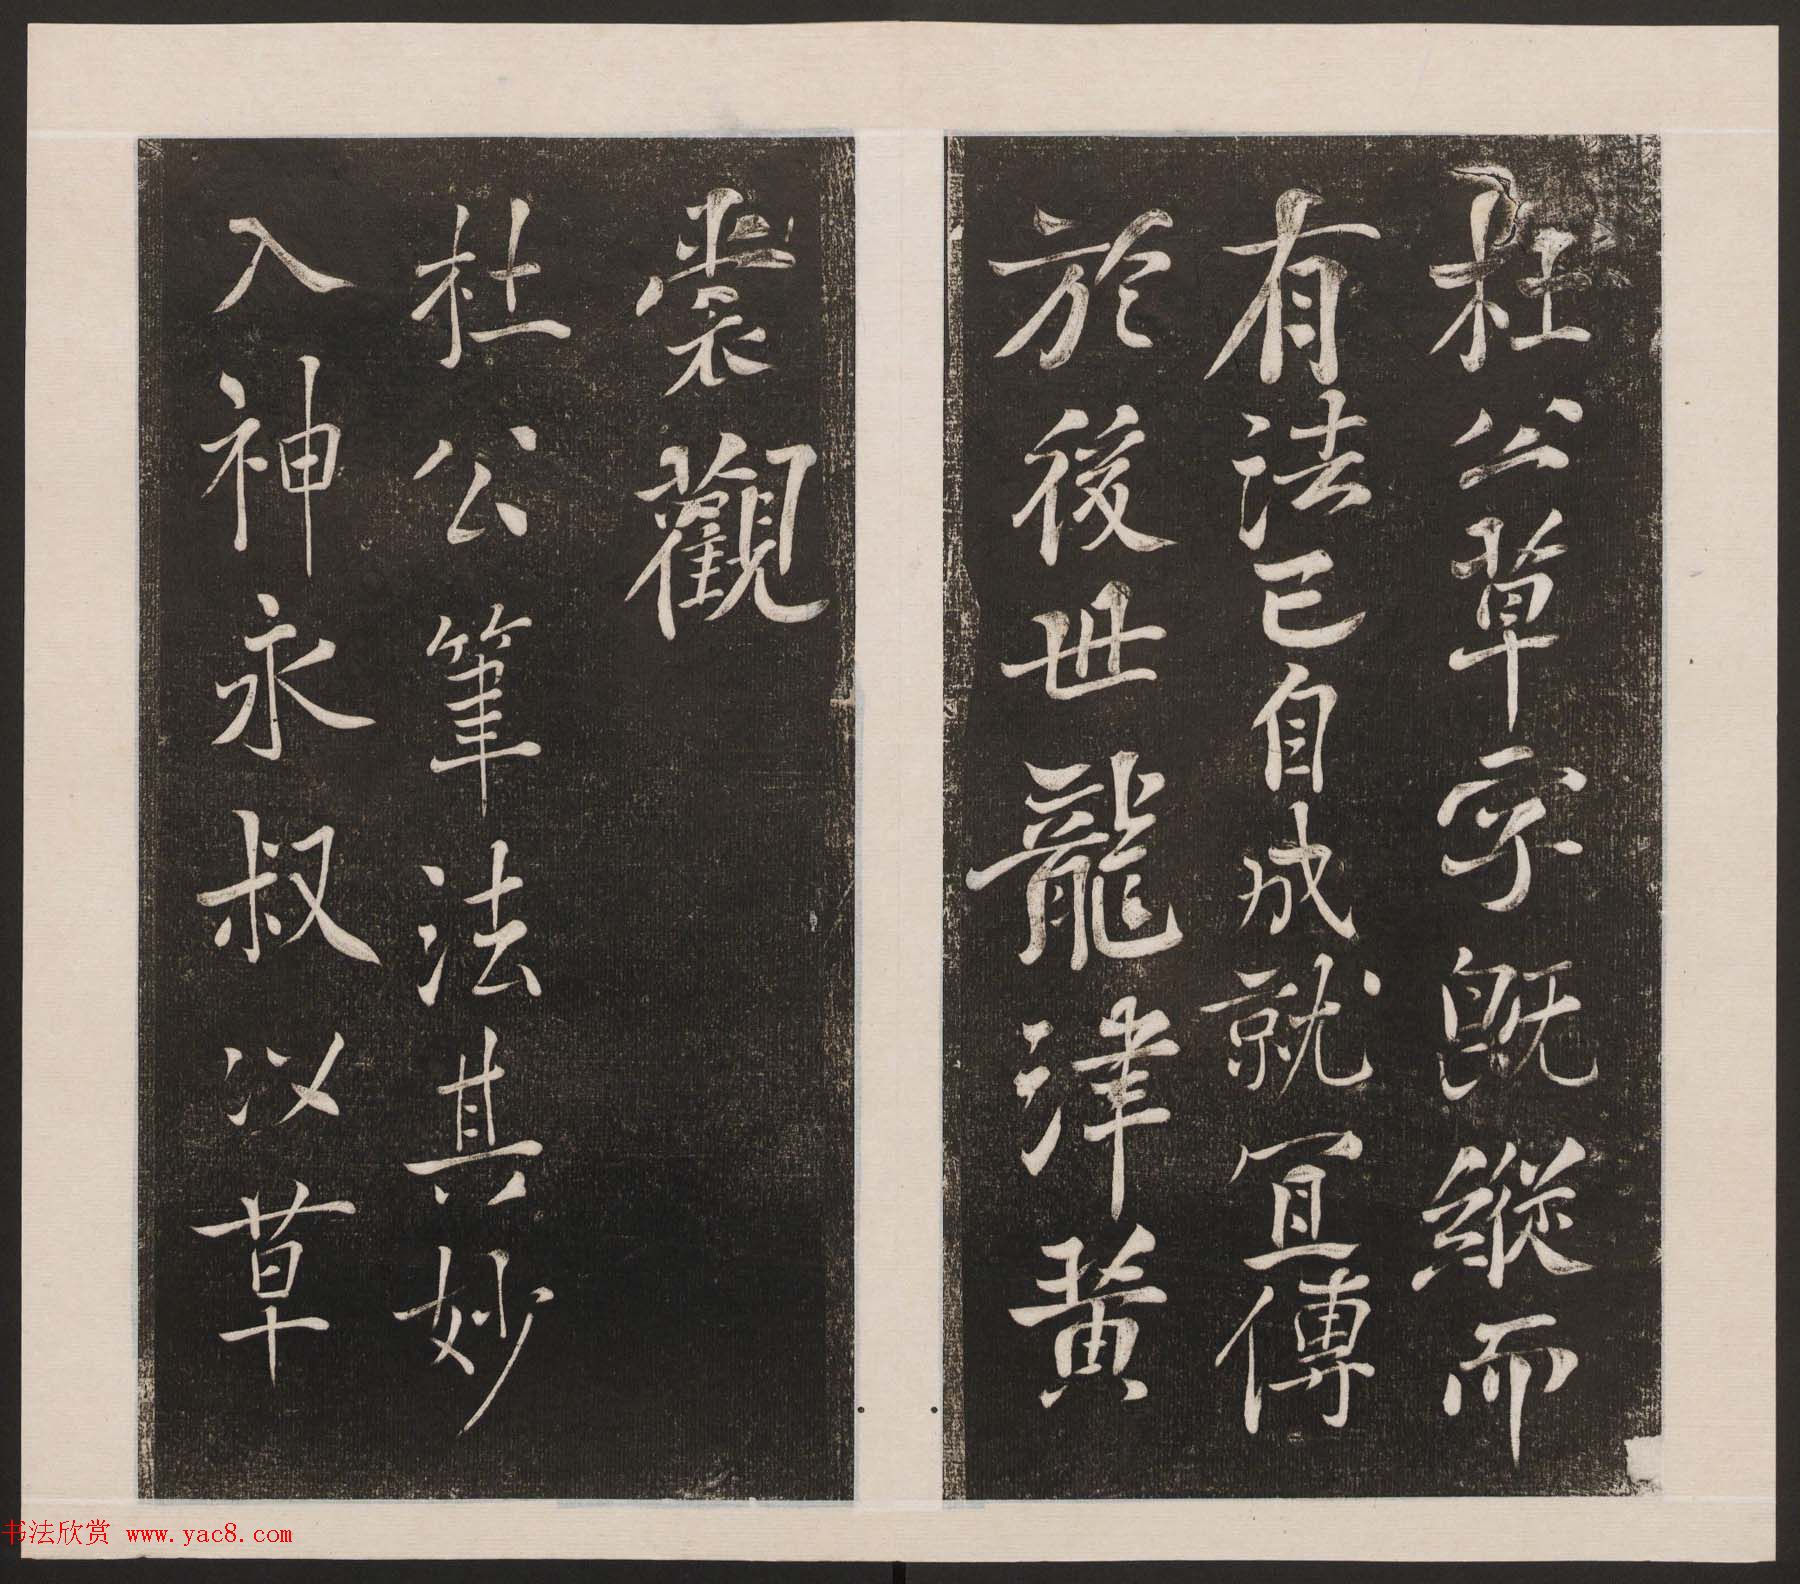 杜公草字既縱而
有法已自成就冝傳
於後世龍津黄
裳觀
杜公筆法其妙
入神永叔以草
书法欣赏 www.yac8.com